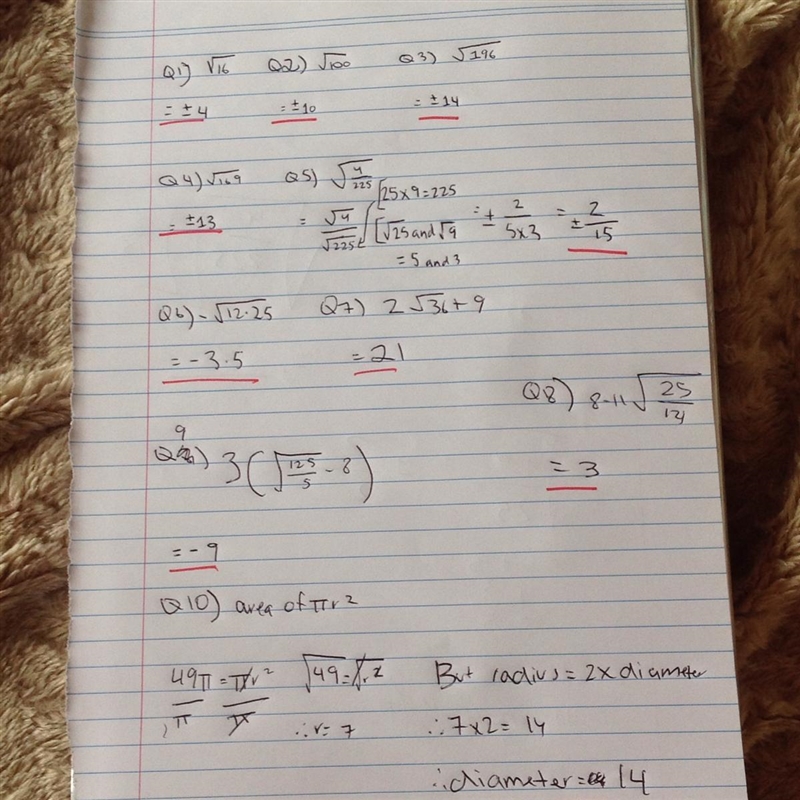 Q1) √16 Q2) √100 Q3) √196
= ±4 = ±10 = ±14
Q4) √169 Q5) √4/225 [25×9=225
= ±13 = √4/√225 [√25 and √9 = ± 2/5×3 = ± 2/15
= 5 and 3
Q6) -√12·25 Q7) 2√36+9
= -3·5 = 21
Q8) 8-11√25/121
9
Q) 3(√125/5 - 8)
= 3
= -9
Q10) area of πr²
49π = πr² √49 = √r² But radius = 2x diameter
π π ∴ r = 7 ∴ 7×2 = 14
∴ diameter = 14